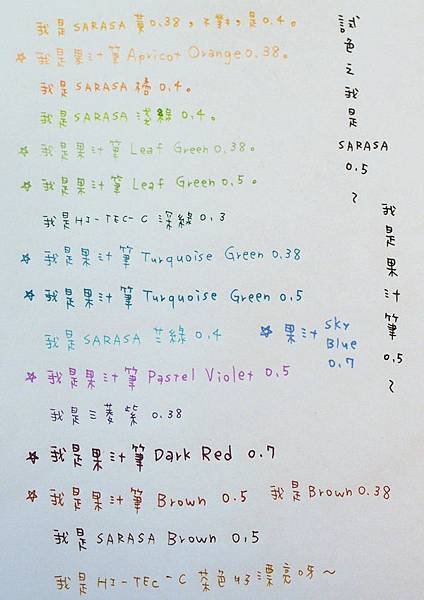 我是SARASA 黃0.38，不對，是0.4。
☆ 我是果汁筆 Apricot Orange 0.38。
我是SARASA 橘0.4。
我是SARASA 淺綠0.4。
☆ 我是果汁筆 Leaf Green 0.38。
☆ 我是果汁筆 Leaf Green 0.5。
我是HI-TEC-C 深綠0.3
☆ 我是果汁筆 Turquoise Green 0.38
☆ 我是果汁筆 Turquoise Green 0.5
我是SARASA 芷綠0.4
☆ 果汁 Sky Blue 0.7
☆ 我是果汁筆 Pastel Violet 0.5
我是三菱紫 0.38
☆ 我是果汁筆 Dark Red 0.7
☆ 我是果汁筆 Brown 0.5 我是Brown 0.38
我是SARASA Brown 0.5
我是HI-TEC-C 茶色 好漂亮呀～
試色之我是SARASA 0.5～
我是果汁筆0.5～